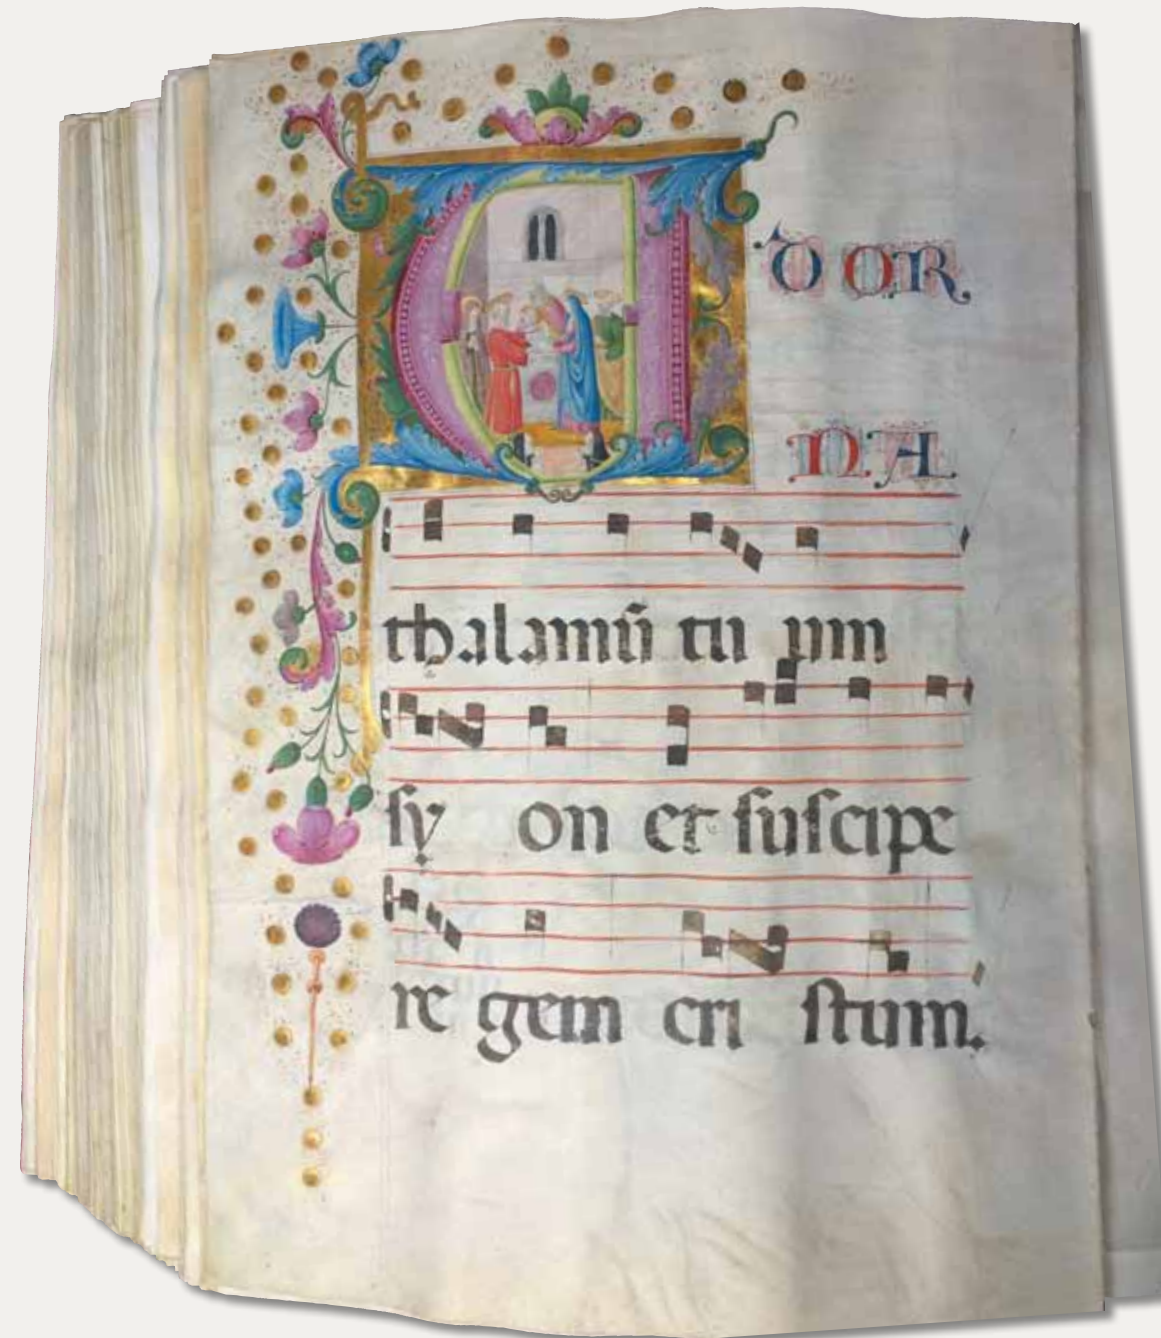 A DOR
NA
thalamū tu um
sy on et suscipe
re gem cri stum.